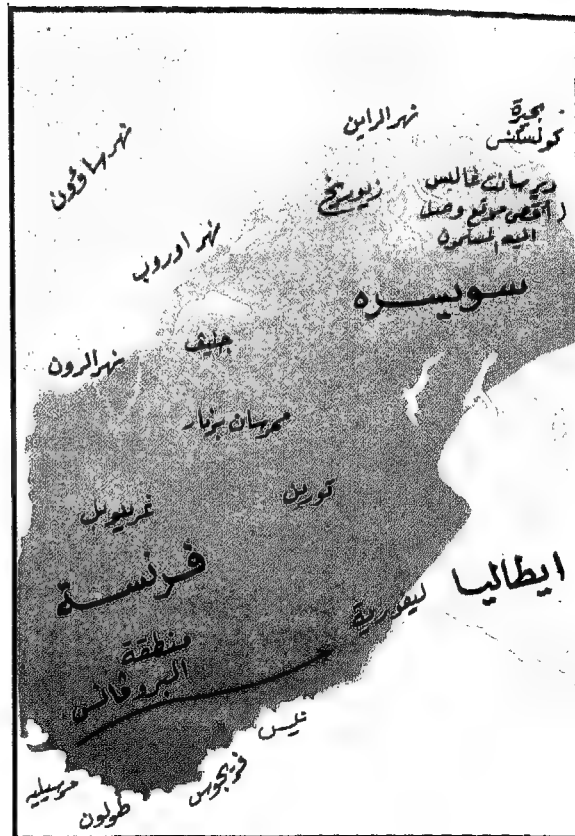 بحيرة
كونستنس
نهر الراين
نهر ساؤون
دير سانت غاليس
( أقصى موقع وصل
اليه المسلمون
زيوريخ
نهر اوروب
سويسره
جنيف
نهر الرون
ممر سان برنار
تورين
غرينوبل
فرنسة
ايطاليا
ليغورية
منطقة
البروفانس
نيس
فريجوس
طولون
مرسيليه